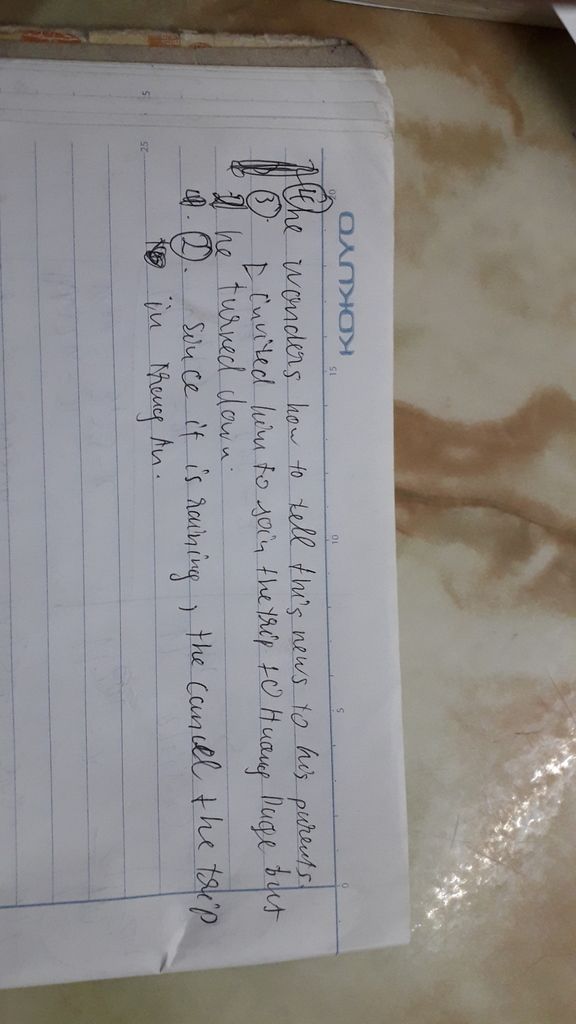 KOKUYO
0 5 10 15 20
④ he wonders how to tell this news to his parents.
③. I invited him to join the trip to Huong Page but
he turned down.
②. Since it is raining, the cancel the trip
in
25
5